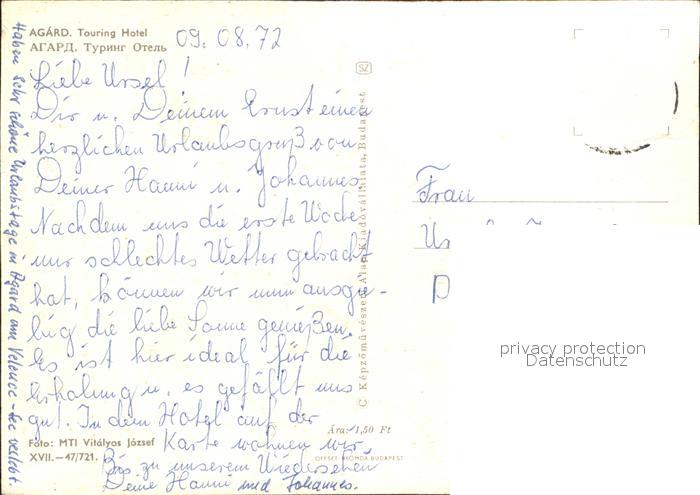 AGÁRD. Touring Hotel
АГАРД. Туринг Отель
09. 08. 72
Liebe Ursel!
Dir u. Deinem Ernst einen
herzlichen Urlaubsgruß von
Deiner Hanni u. Johannes.
Nachdem uns die erste Woche
nur schlechtes Wetter gebracht
hat, können wir nun ausgie-
big die liebe Sonne genießen.
Es ist hier ideal für die
Erholung u. es gefällt uns
gut. In dem Hotel auf der
Karte wohnen wir.
Bis zu unserem Wiedersehen
Deine Hanni und Johannes.
Haben sehr schöne Urlaubstage in Agard am Velence-See verlebt.
Foto: MTI Vitályos József
XVII.—47/721.
SZ
© Képzőművészeti Alap Kiadóvállalata, Budapest
Ára: 1,50 Ft
OFFSET-NYOMDA BUDAPEST
Frau
privacy protection
Datenschutz